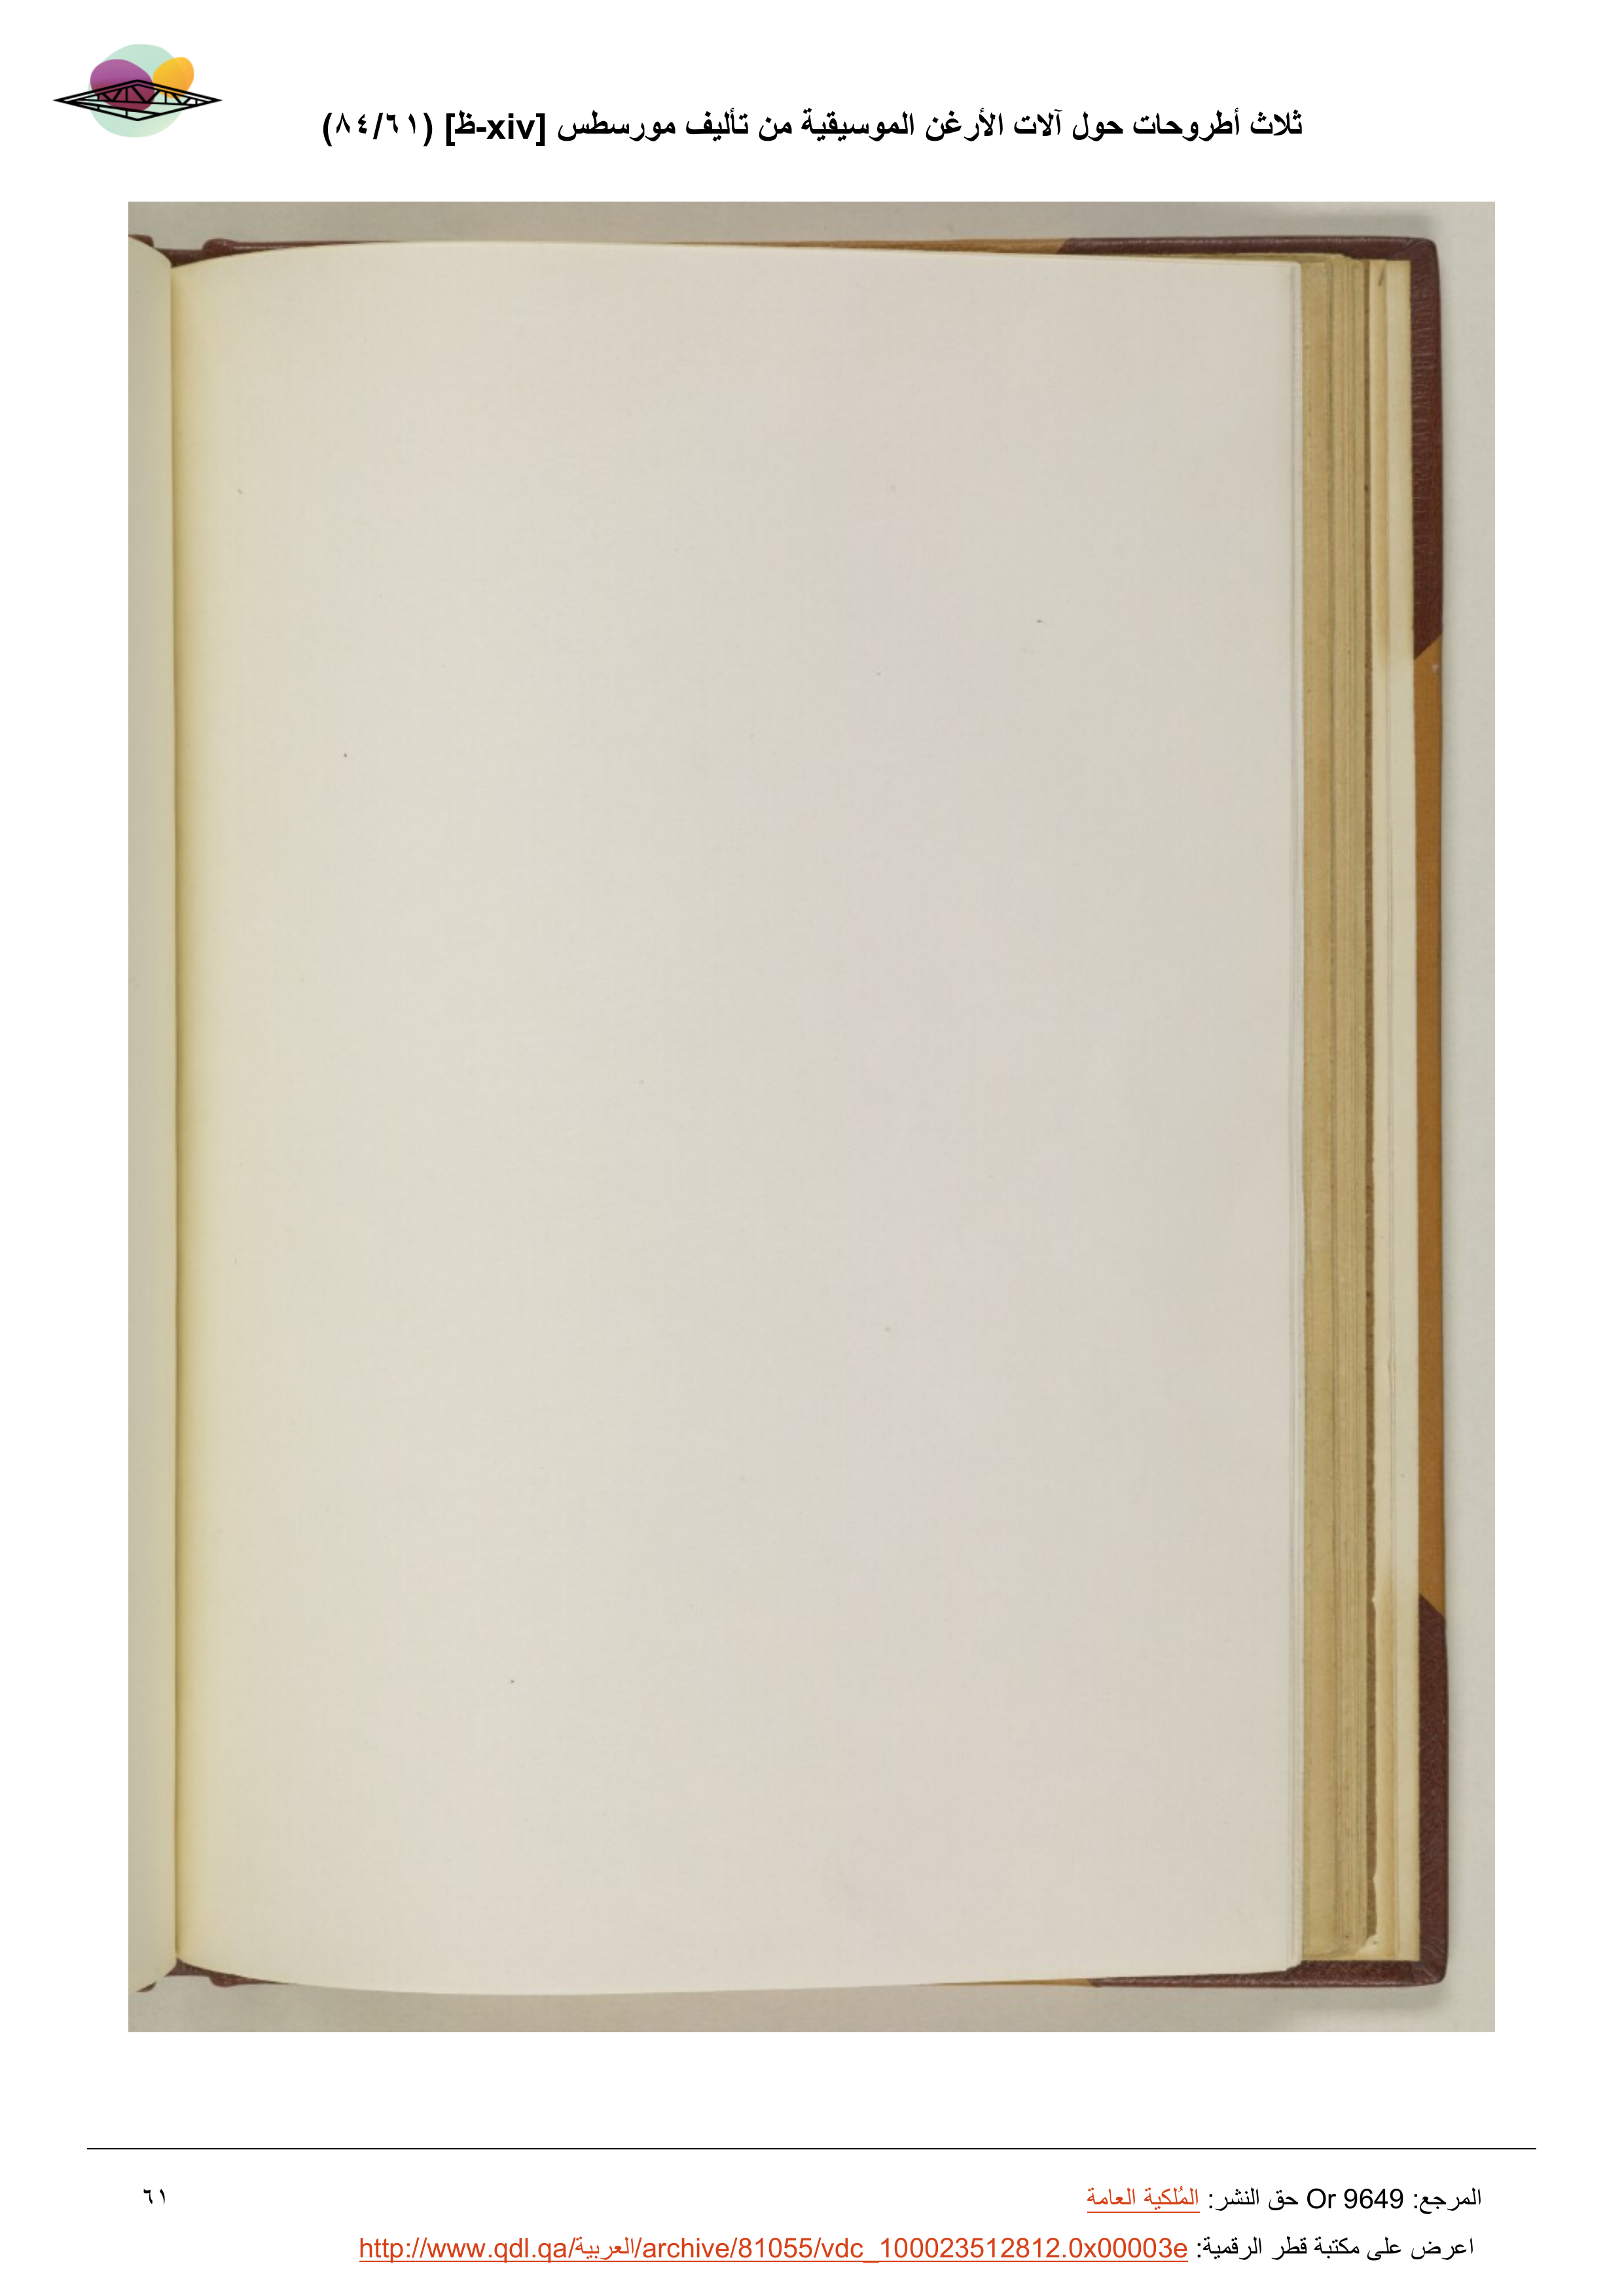 ثلاث أطروحات حول آلات الأرغن الموسيقية من تأليف مورسطس [xiv-ظ] (٨٤/٦١)
المرجع: Or 9649 حق النشر: المُلكية العامة
٦١
اعرض على مكتبة قطر الرقمية: http://www.qdl.qa/العربية/archive/81055/vdc_100023512812.0x00003e